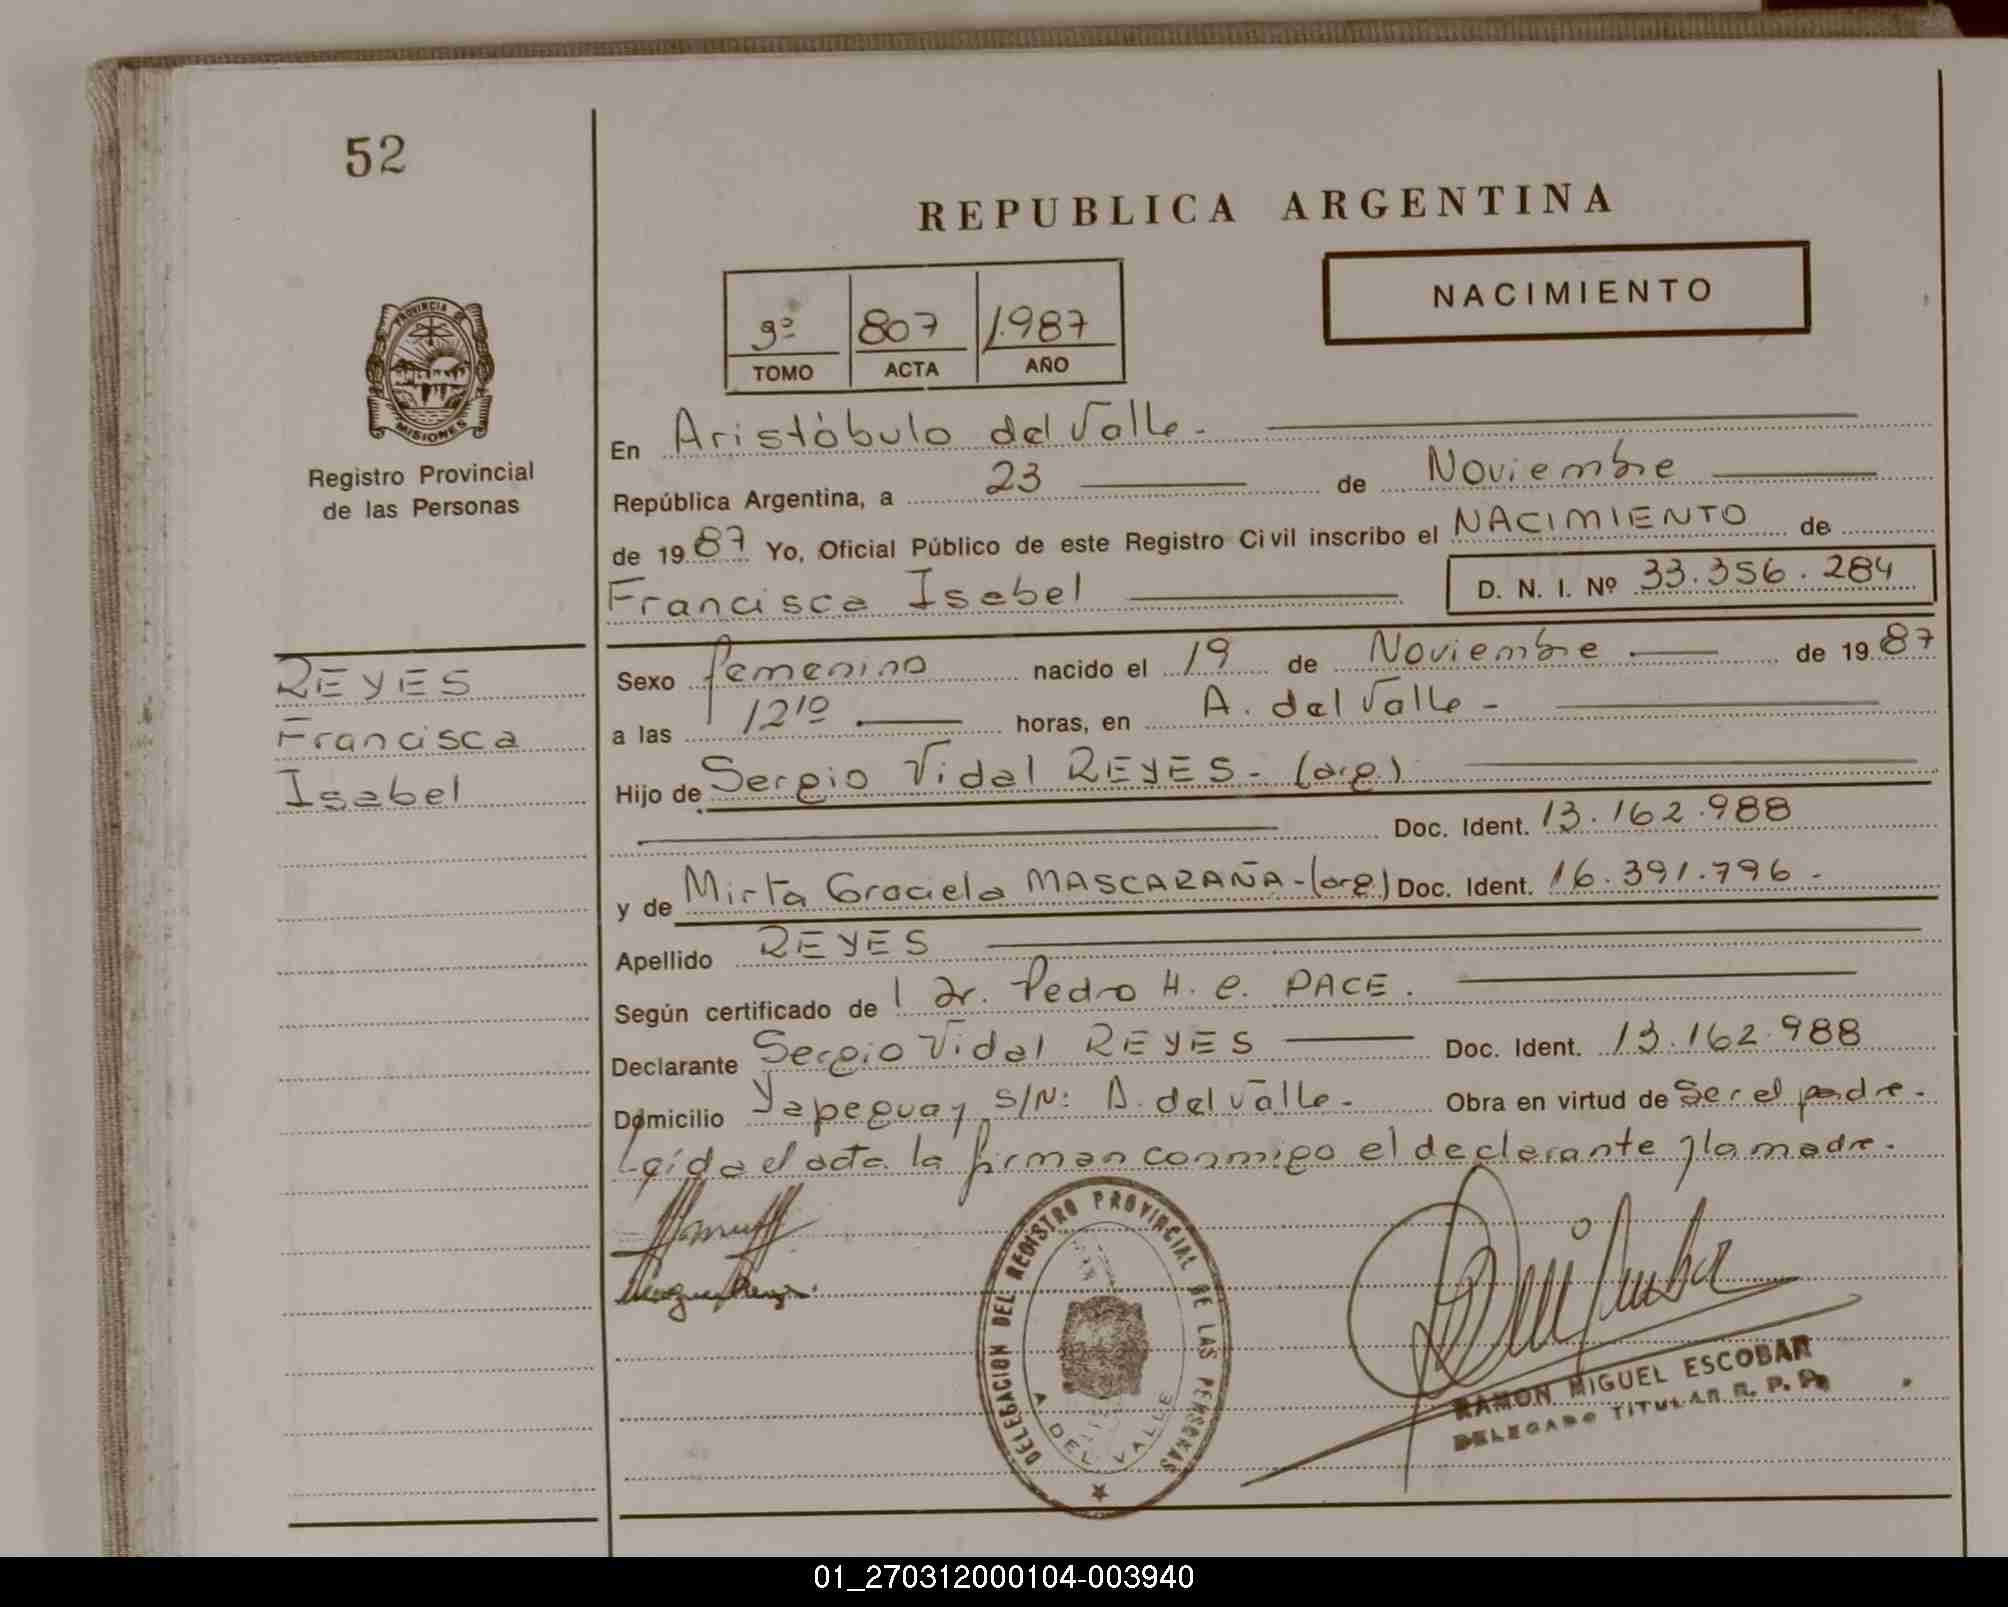 52
REPUBLICA ARGENTINA
NACIMIENTO
9º 807 1.987
TOMO ACTA AÑO
PROVINCIA DE MISIONES
Registro Provincial
de las Personas
En Aristóbulo del Valle.-
República Argentina, a 23 de Noviembre
de 1987 Yo, Oficial Público de este Registro Civil inscribo el NACIMIENTO de
Francisca Isabel D. N. I. Nº 33.356.284
REYES
Francisca
Isabel
Sexo femenino nacido el 19 de Noviembre de 1987
a las 12¹⁰ horas, en A. del Valle-
Hijo de Sergio Vidal REYES- (arg.)
Doc. Ident. 13.162.988
y de Mirta Graciela MASCARAÑA-(arg.) Doc. Ident. 16.391.796.-
Apellido REYES
Según certificado de l Dr. Pedro H. C. PACE.
Declarante Sergio Vidal REYES Doc. Ident. 13.162.988
Domicilio Yapeguay S/N: A. del Valle- Obra en virtud de Ser el padre.-
Leída el acta la firman conmigo el declarante y la madre.
DELEGACION DEL REGISTRO PROVINCIAL DE LAS PERSONAS
A DEL VALLE
RAMON MIGUEL ESCOBAR
DELEGADO TITULAR R. P. P.
01_270312000104-003940